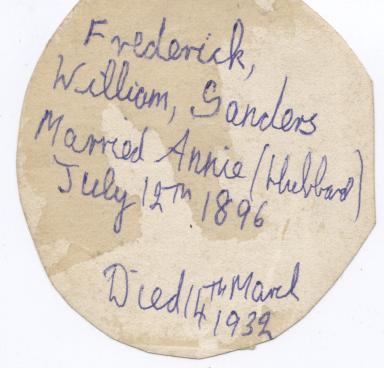 Frederick,
William, Sanders
Married Annie (Hubbard)
July 12TH 1896
Died 14TH March
1932